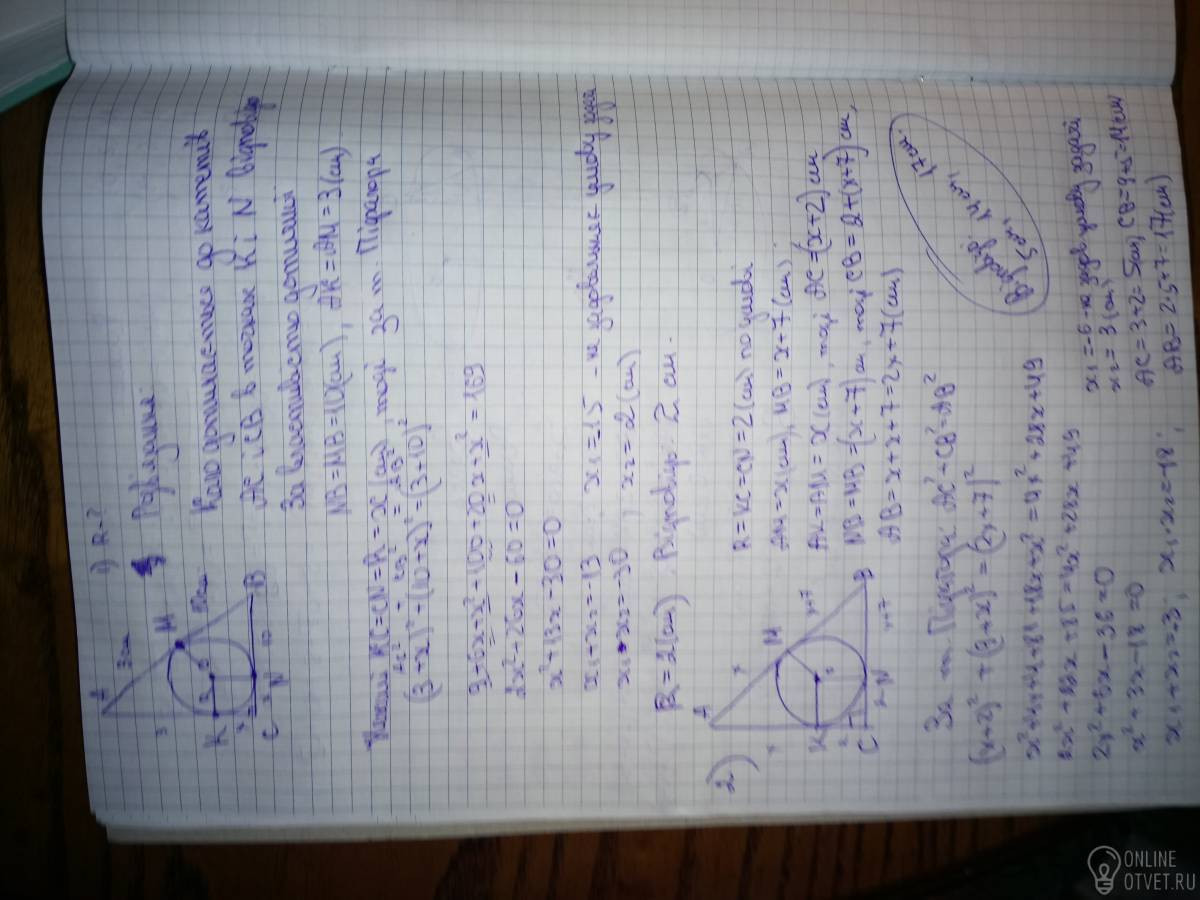 1) R-?
Розв'язання
Коло дотикається до катетів
AC і CB в точках K і N відповідно
За властивістю дотичної
NB = MB = 10 (см), AK = AM = 3 (см)
KC = CN = R = x (см), тоді за т. Піфагора
AC² + CB² = AB²
(3+x)² + (10+x)² = (3+10)²
9 + 6x + x² + 100 + 20x + x² = 169
2x² + 26x - 60 = 0
x² + 13x - 30 = 0
x₁ + x₂ = -13
x₁ = -15 - не задовольняє умову задачі
x₁ · x₂ = -30 ; x₂ = 2 (см)
R = 2 (см) Відповідь: 2 см.
A
3 см
M
10 см
B
3
K
C
N
10
2)
A
x
M
x+7
B
x
K
2
C
2
N
x+7
R = KC = CN = 2 (см) по умові
AM = x (см), MB = x + 7 (см)
AK = AM = x (см), тоді AC = (x+2) см
NB = MB = (x+7) см, тоді CB = 2 + (x+7) см,
AB = x + x + 7 = 2x + 7 (см)
За т. Піфагора AC² + CB² = AB²
(x+2)² + (9+x)² = (2x+7)²
x² + 4x + 4 + 81 + 18x + x² = 4x² + 28x + 49
2x² + 22x + 85 = 4x² + 28x + 49
2x² + 6x - 36 = 0
x² + 3x - 18 = 0
x₁ + x₂ = -3 ; x₁ · x₂ = -18 ;
x₁ = -6 - не задов. умову задачі
x₂ = 3 (см)
AC = 3 + 2 = 5 см, CB = 9 + 5 = 14 см
AB = 2·5 + 7 = 17 (см)
Відповідь:
5 см, 14 см, 17 см.
ONLINE
OTVET.RU